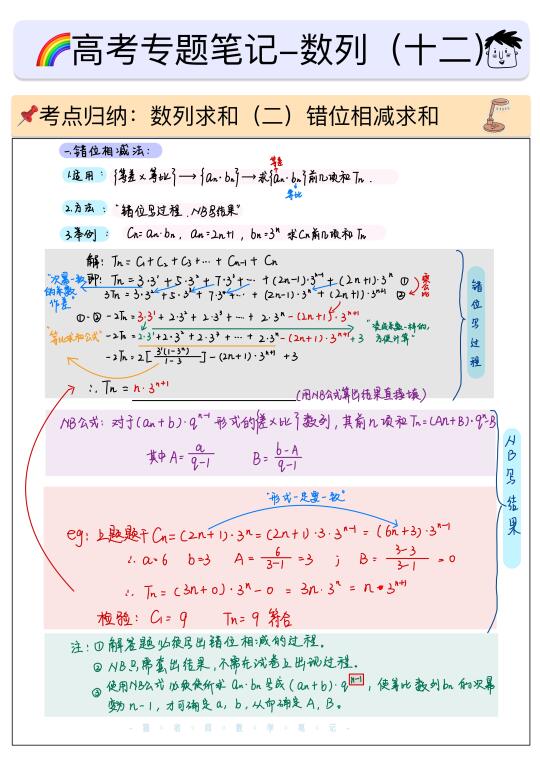 高考专题笔记-数列（十二）
考点归纳：数列求和（二）错位相减求和
一.错位相减法：
等差
1.适用： {等差×等比}→{an·bn}→求{an·bn}前n项和Tn.
等比
2.方法： "错位写过程,NB写结果"
3.举例： Cn=an·bn, an=2n+1, bn=3ⁿ 求Cn前n项和Tn
解: Tn=C₁+C₂+C₃+…+Cn-1+Cn
"次幂一致的系数作差"
即: Tn=3·3¹+5·3²+7·3³+…+(2n-1)·3ⁿ⁻¹+(2n+1)·3ⁿ ①
3Tn=3·3²+5·3³+7·3⁴+…+(2n-1)·3ⁿ+(2n+1)·3ⁿ⁺¹ ②
乘公比
①-② -2Tn=3·3¹+2·3²+2·3³+…+2·3ⁿ-(2n+1)·3ⁿ⁺¹
"等比求和公式" -2Tn=2·3¹+2·3²+2·3³+…+2·3ⁿ-(2n+1)·3ⁿ⁺¹+3
"凑成系数一样的,方便计算"
-2Tn=2[3¹(1-3ⁿ)/1-3]-(2n+1)·3ⁿ⁺¹+3
∴Tn=n·3ⁿ⁺¹
(用NB公式算出结果直接填)
错位写过程
NB公式: 对于(an+b)·qⁿ⁻¹形式的{差×比}数列,其前n项和Tn=(An+B)·qⁿ-B
其中A=a/q-1 B=b-A/q-1
NB写结果
"形式一定要一致"
eg: 上题题干Cn=(2n+1)·3ⁿ=(2n+1)·3·3ⁿ⁻¹=(6n+3)·3ⁿ⁻¹
∴a=6 b=3 A=6/3-1=3 ; B=3-3/3-1=0
∴Tn=(3n+0)·3ⁿ-0=3n·3ⁿ=n·3ⁿ⁺¹
检验: C₁=9 Tn=9 符合
注:①解答题必须写出错位相减的过程.
②NB只需套出结果,不需在试卷上出现过程.
③使用NB公式必须使所求an·bn写成(an+b)·qⁿ⁻¹,使等比数列bn的次幂
变为n-1,才可确定a,b,从而确定A,B。